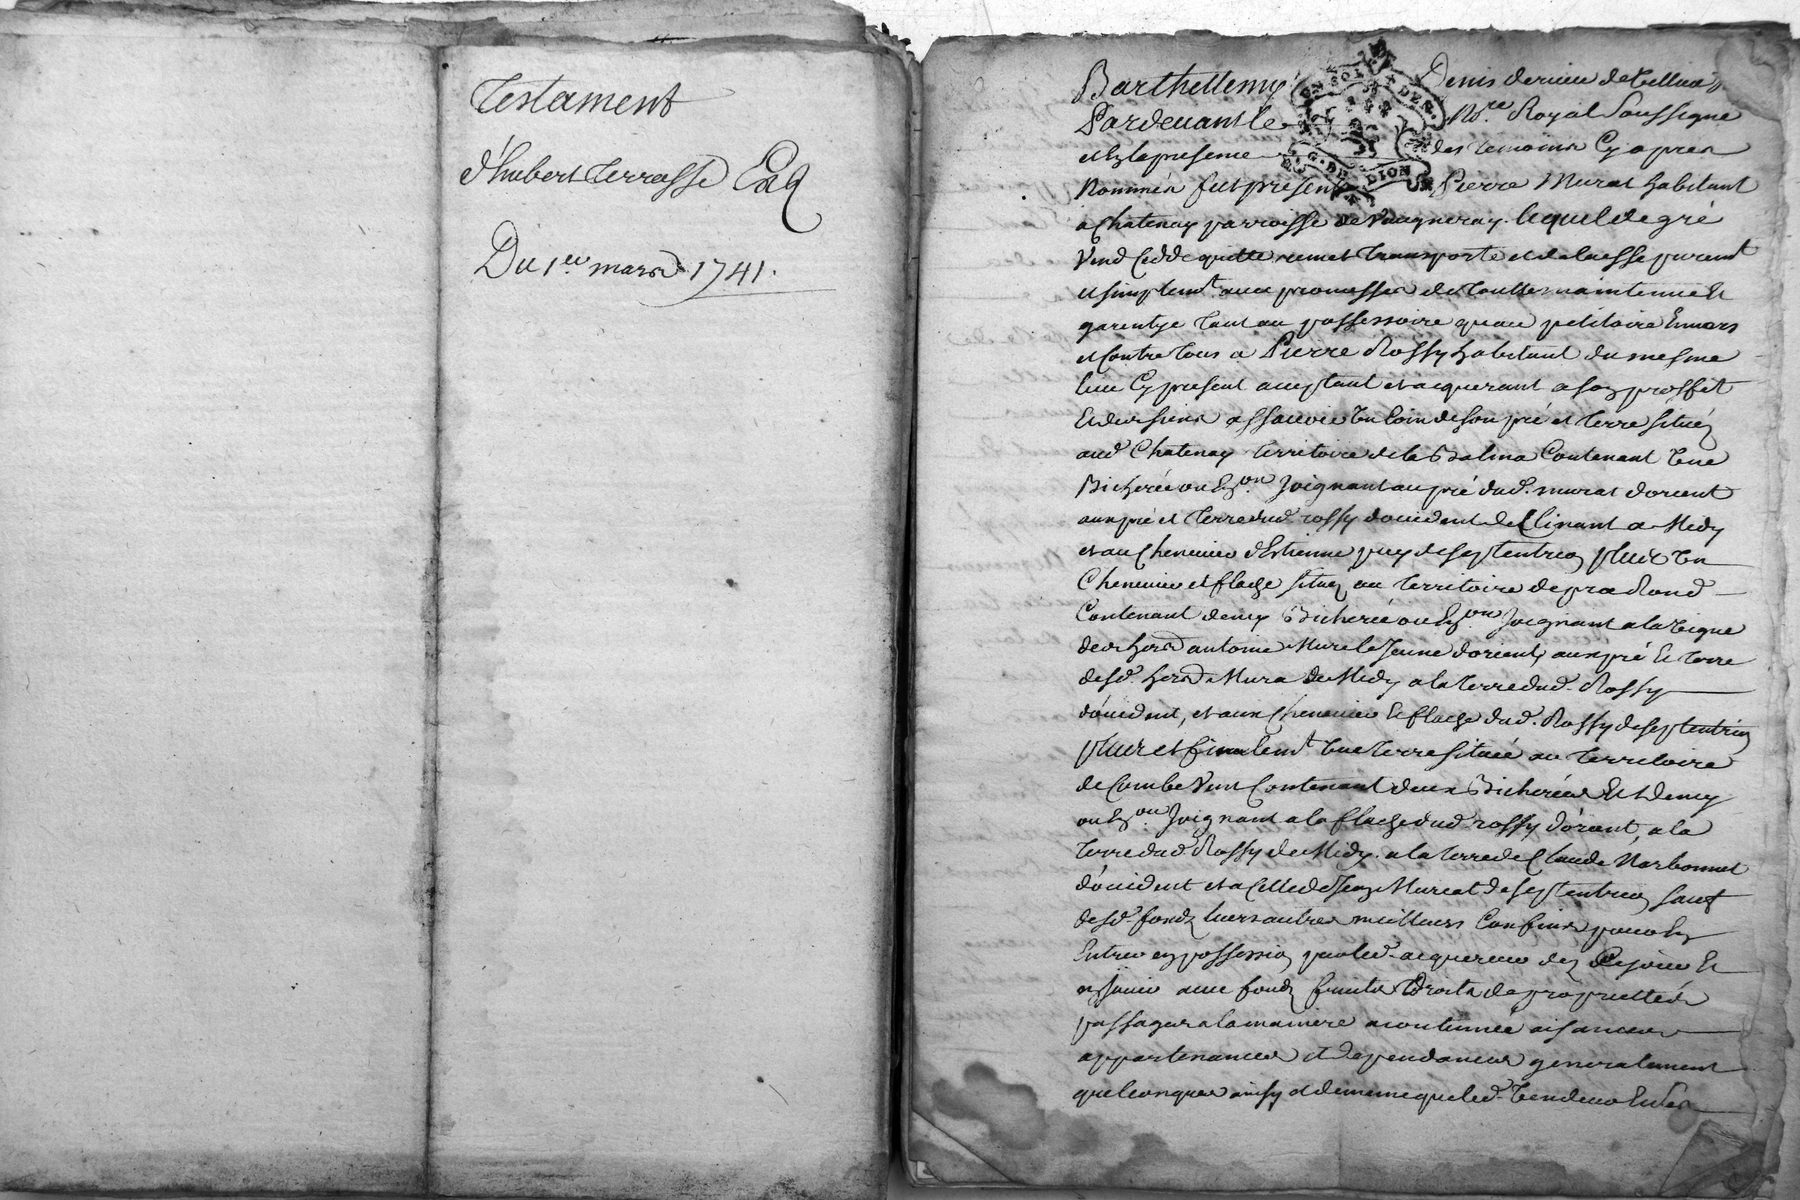 Testament
d'hubert terrasse
Du 1.er mars 1741.
Barthellemy Denis
Pardevant le No.re Royal soussigné
et En la presence des temoins Cy apres
Nommés fut present Pierre Murat habitant
a Chatenay parroisse de Vaugneray. lequel de gré
Vend Cedde quitte remet transporte et delaisse purem.t
et simplem.t avec promesses de touttes maintenüe Et
garentye tant au possessoire quau petitoire Envers
et Contre tous a Pierre Rossy habitant du mesme
lieu Cy present acceptant et acquerant a son proffit
Et des siens assavoir Un Coin de son pré et terre situéz
aud. Chatenay territoire de la Balma Contenant Une
Bicherée ou Env.on Joignant au pré dud. murat dorient
aux pré et terre dud. rossy doccident de Clinant a Midy
et au Chenevier d'Estienne puy de septentrion plus Un
Chenevier et flache situéz au territoire de pra Rond
Contenant demy Bicherée ou Env.on Joignant a la Vigne
des hers antoine Mure le Jeune dorient, aux pré Et terre
desd. hers Mura de Midy a la terre dud. Rossy
d'occident, et aux Chenevier Et flache dud. Rossy de septentrion
plus et finalem.t Une terre située au territoire
de Combe Vent Contenant deux Bicherées Et demy
ou Env.on Joignant a la flache dud. rossy d'orient, a la
terre dud. Rossy de Midy. a la terre de Claude Narbonnet
d'occident et a Celle de Jean Murat de septentrion sauf
desd. fondz leurs autres meilleurs Confins pour En
Entrer en possession par led. acquereur dez Ce jour Et
en Jouir avec fondz fruits Droits de proprietéz
passages a la maniere accoutumée aisances
appartenances et dependances generalement
quelconques ainsy et de meme que led. Vendeur